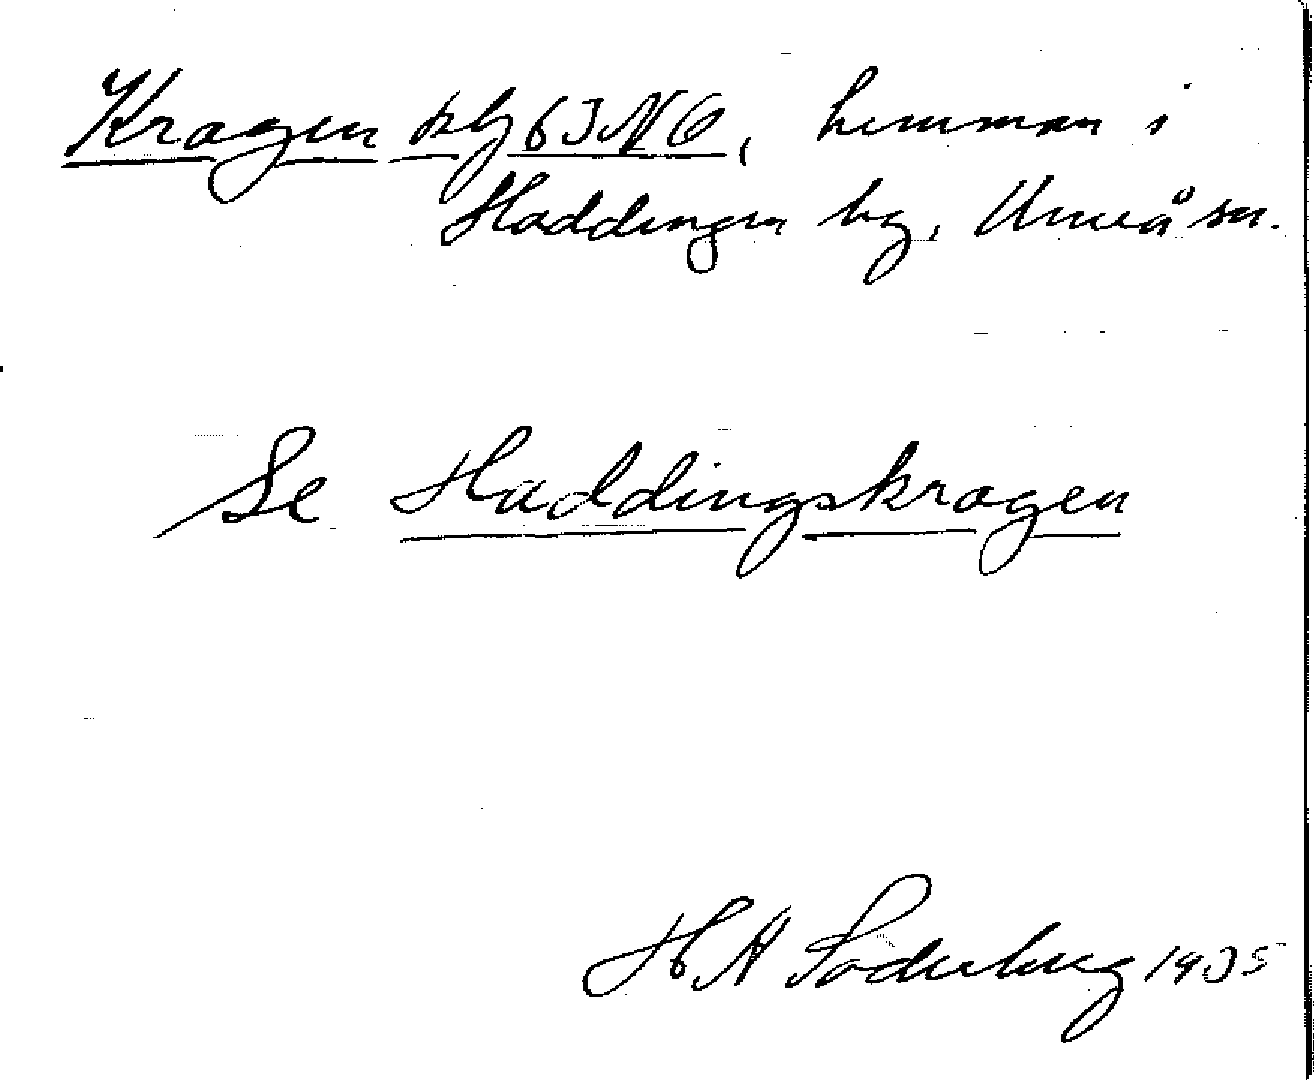 Kragen
hemman i
Haddingen by, Umeå sn.
Se Haddingskragen
H A Söderberg 1935